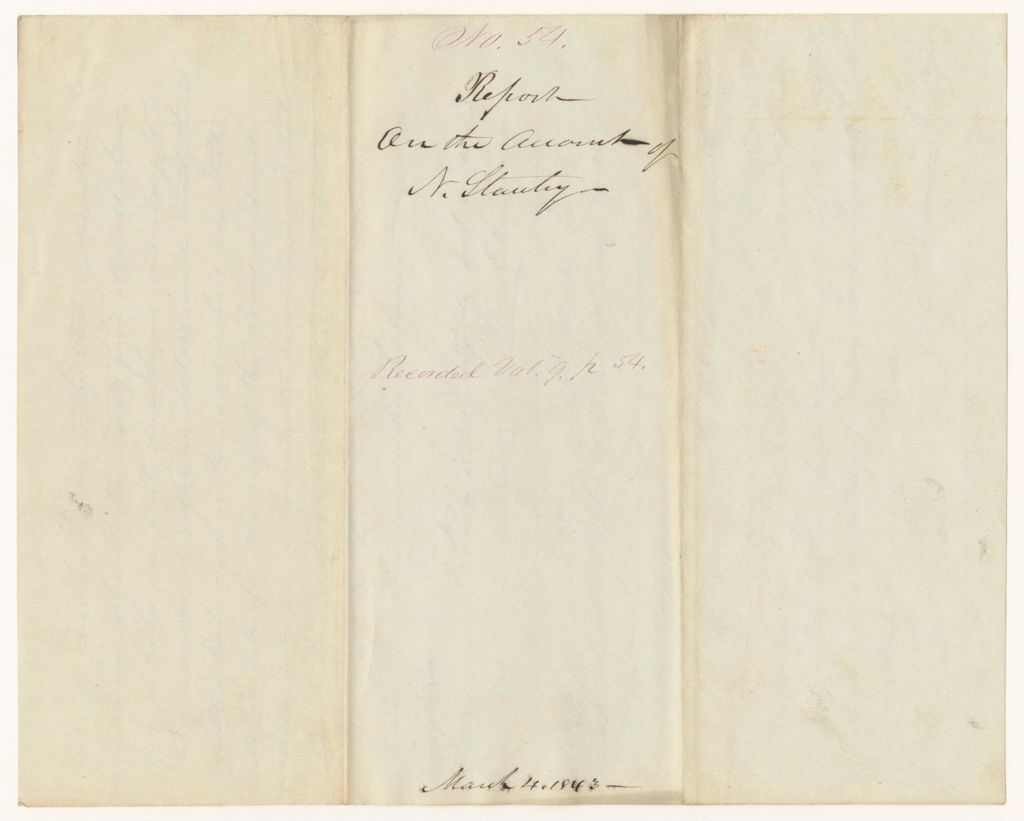 No. 54.
Report
On the Account of
N. Stanley
Recorded Vol. 9. p 54.
March 4. 1843